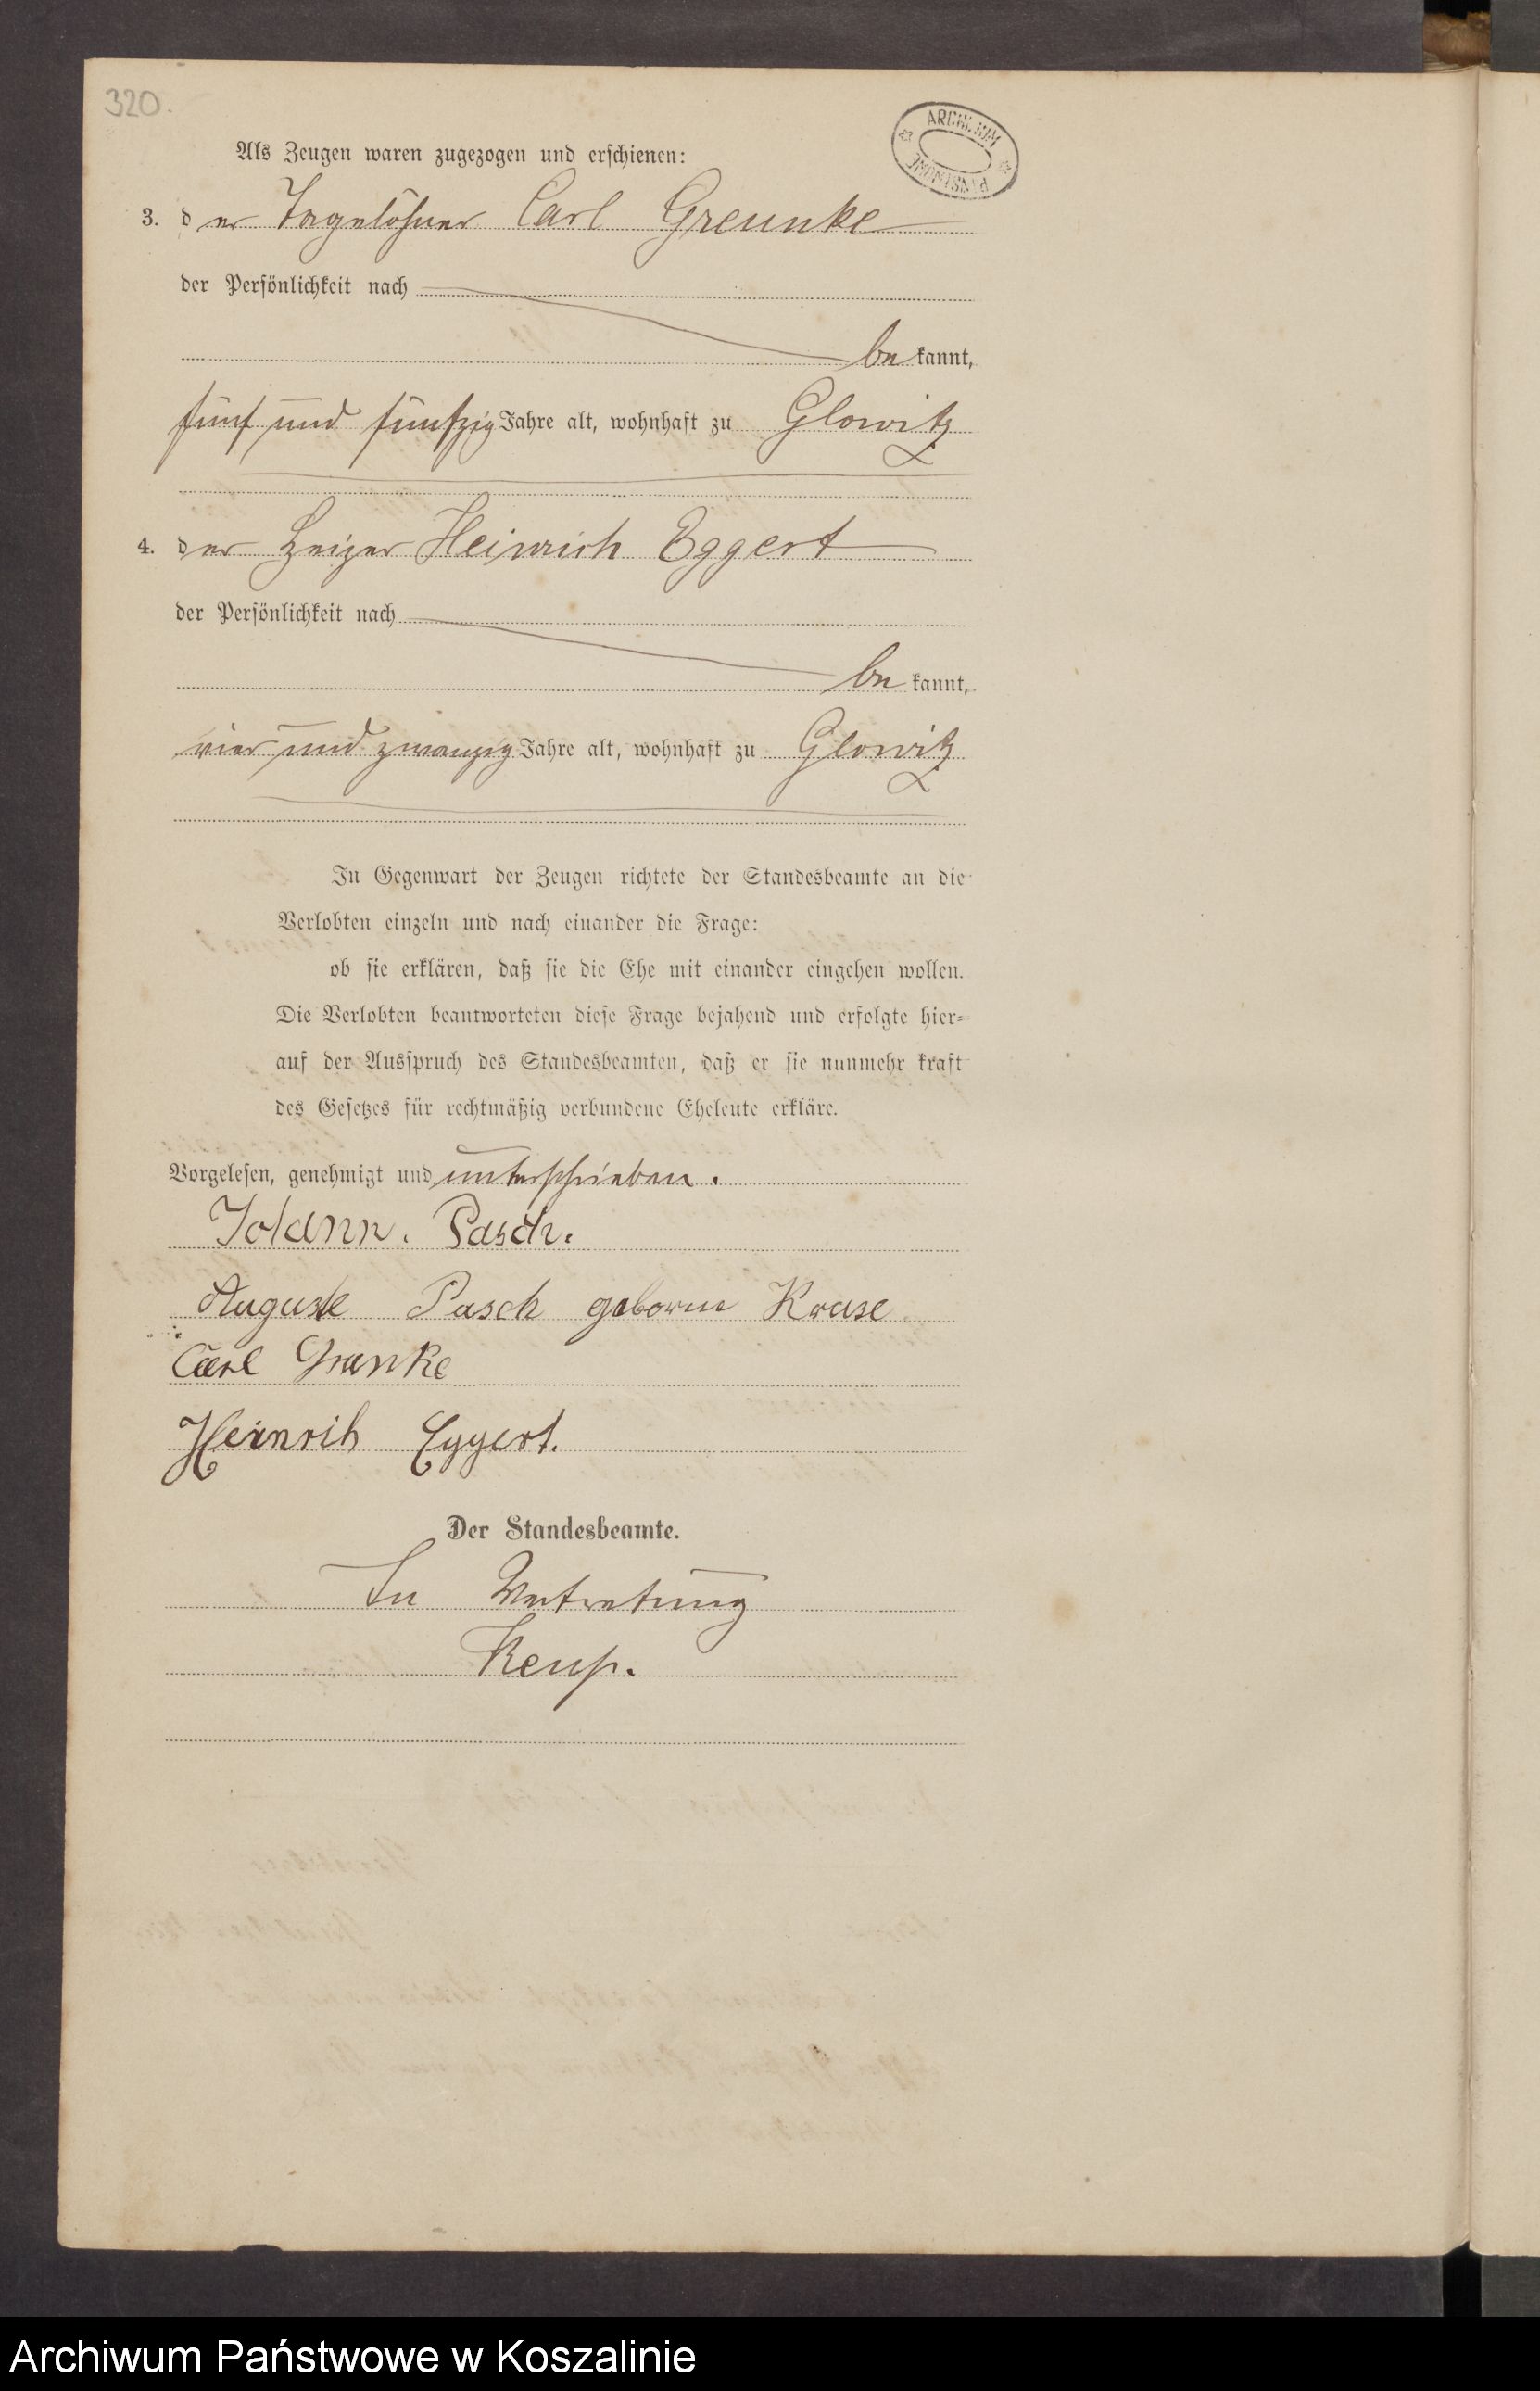 320.
ARCHIWUM PAŃSTWOWE
Als Zeugen waren zugezogen und erschienen:
3. der Tagelöhner Carl Greunke
der Persönlichkeit nach
be kannt,
fünf und fünfzig Jahre alt, wohnhaft zu Glowitz
4. der Heizer Heinrich Eggert
der Persönlichkeit nach
be kannt,
vier und zwanzig Jahre alt, wohnhaft zu Glowitz
In Gegenwart der Zeugen richtete der Standesbeamte an die
Verlobten einzeln und nach einander die Frage:
ob sie erklären, daß sie die Ehe mit einander eingehen wollen.
Die Verlobten beantworteten diese Frage bejahend und erfolgte hier=
auf der Ausspruch des Standesbeamten, daß er sie nunmehr kraft
des Gesetzes für rechtmäßig verbundene Eheleute erkläre.
Vorgelesen, genehmigt und unterschrieben.
Johann. Pasch.
Auguste Pasch geborne Kruse
Carl Grunke
Heinrih Eggert.
Der Standesbeamte.
In Vertretung
Keup.
Archiwum Państwowe w Koszalinie